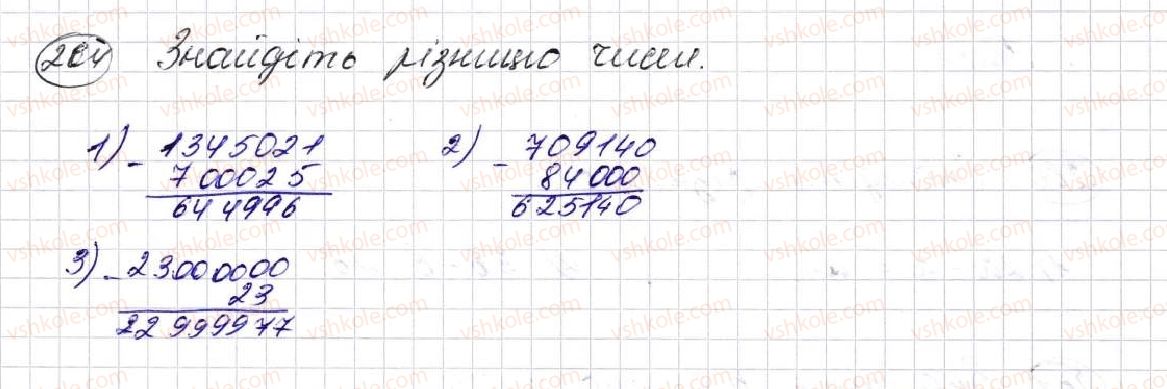 204 Знайдіть різницю чисел.
1) - 1345021
700025
644996
2) - 709140
84000
625140
3) - 23000000
23
22999977
vshkole.com